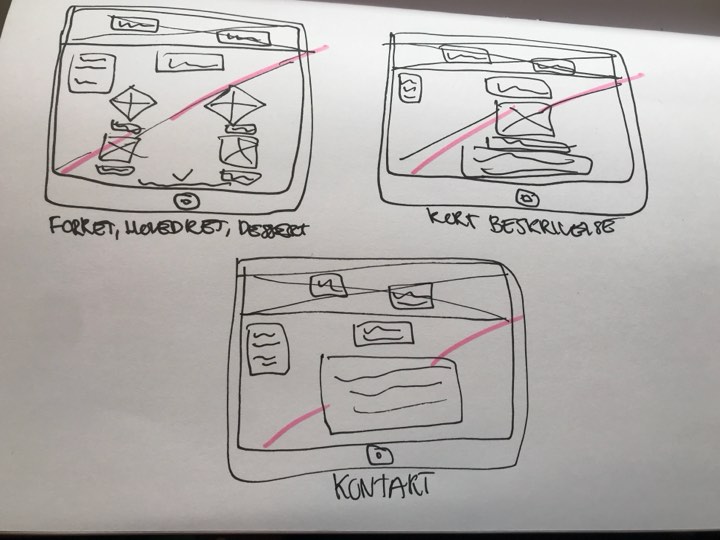 FORRET, HOVEDRET, DESSERT
KORT BESKRIVELSE
KONTAKT